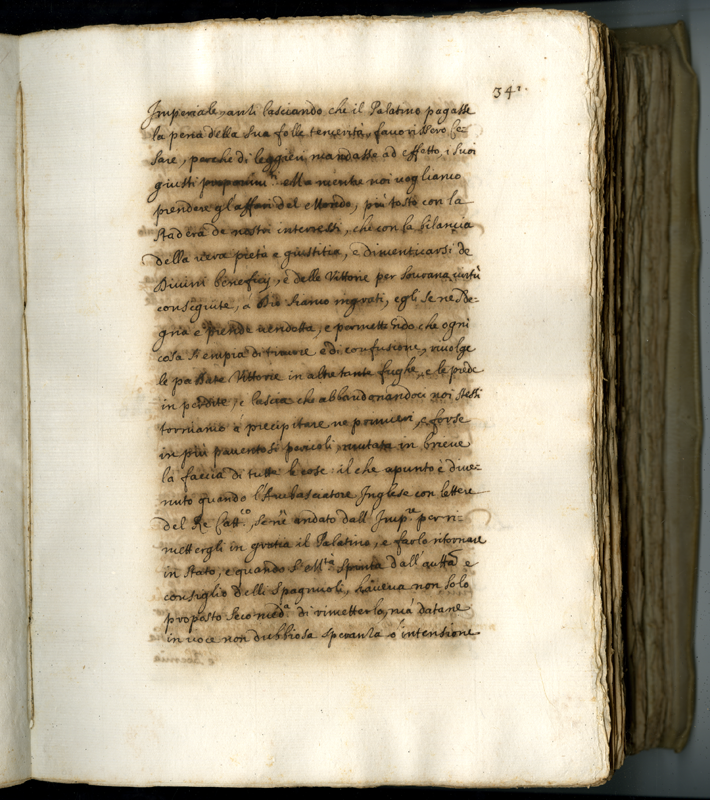 341.
Imperiale, anti lasciando che il Palatino pagasse
la pena della sua folle temerità, favorissero Ce-
sare, perche di leggieri mandasse ad effetto i suoi
giusti Ma mentre noi vogliamo
prendere gl'affari del Mondo, più tosto con la
stadera de nostri interessi, che con la bilancia
della vera pietà e giustitia, e dimenticarsi de
Divini beneficij, e delle Vittorie per sourana virtù
conseguite, à Dio siamo ingrati, egli se ne sde-
gna e prende vendetta, e permettendo che ogni
cosa s'empia di timore e di confusione, rivolge
le passate Vittorie in altre tante fughe, e le prede
in perdite, e lascia che abbandonandoci noi stessi
torniamo à precipitare ne primieri, e forse
in più paventosi pericoli, mutata in brieve
la faccia di tutte le cose: il che apunto è dive-
nuto quando l'Ambasciatore Inglese con lettere
del Rè Catt.co, se n'è andato dall'Imp.re per ri-
mettergli in gratia il Palatino, e farlo ritornare
in stato, e quando S. M.tà spinta dall'autt.à e
consiglio delli Spagnuoli, haveva non solo
proposto seco med.a di rimetterlo, mà datane
in voce non dubbiosa speranza ò intensione